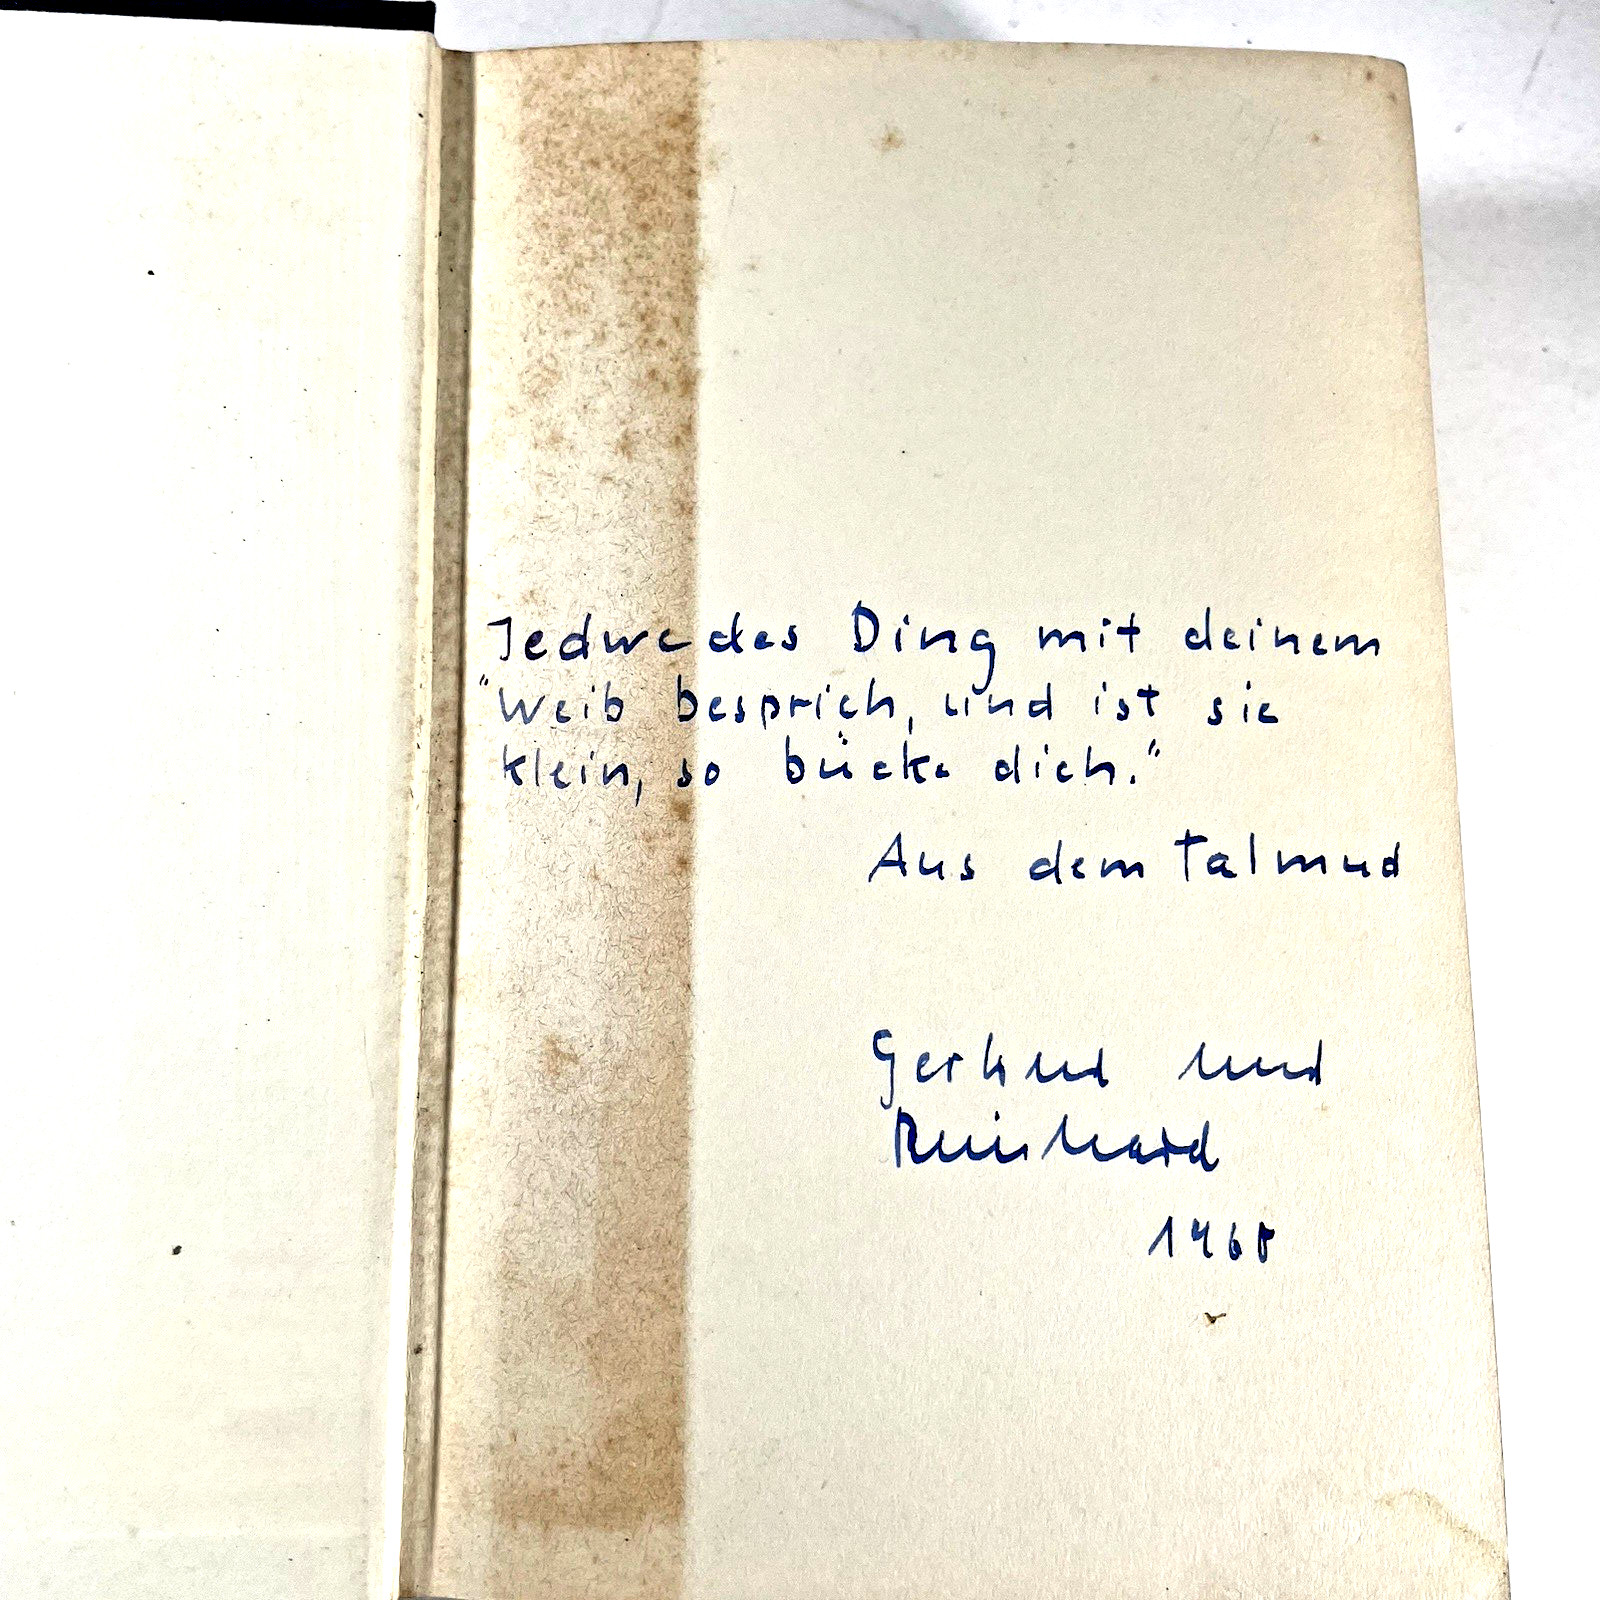 Jedwedes Ding mit deinem
"Weib besprich, und ist sie
klein, so bücke dich."
Aus dem Talmud
und
Reinhard
1968